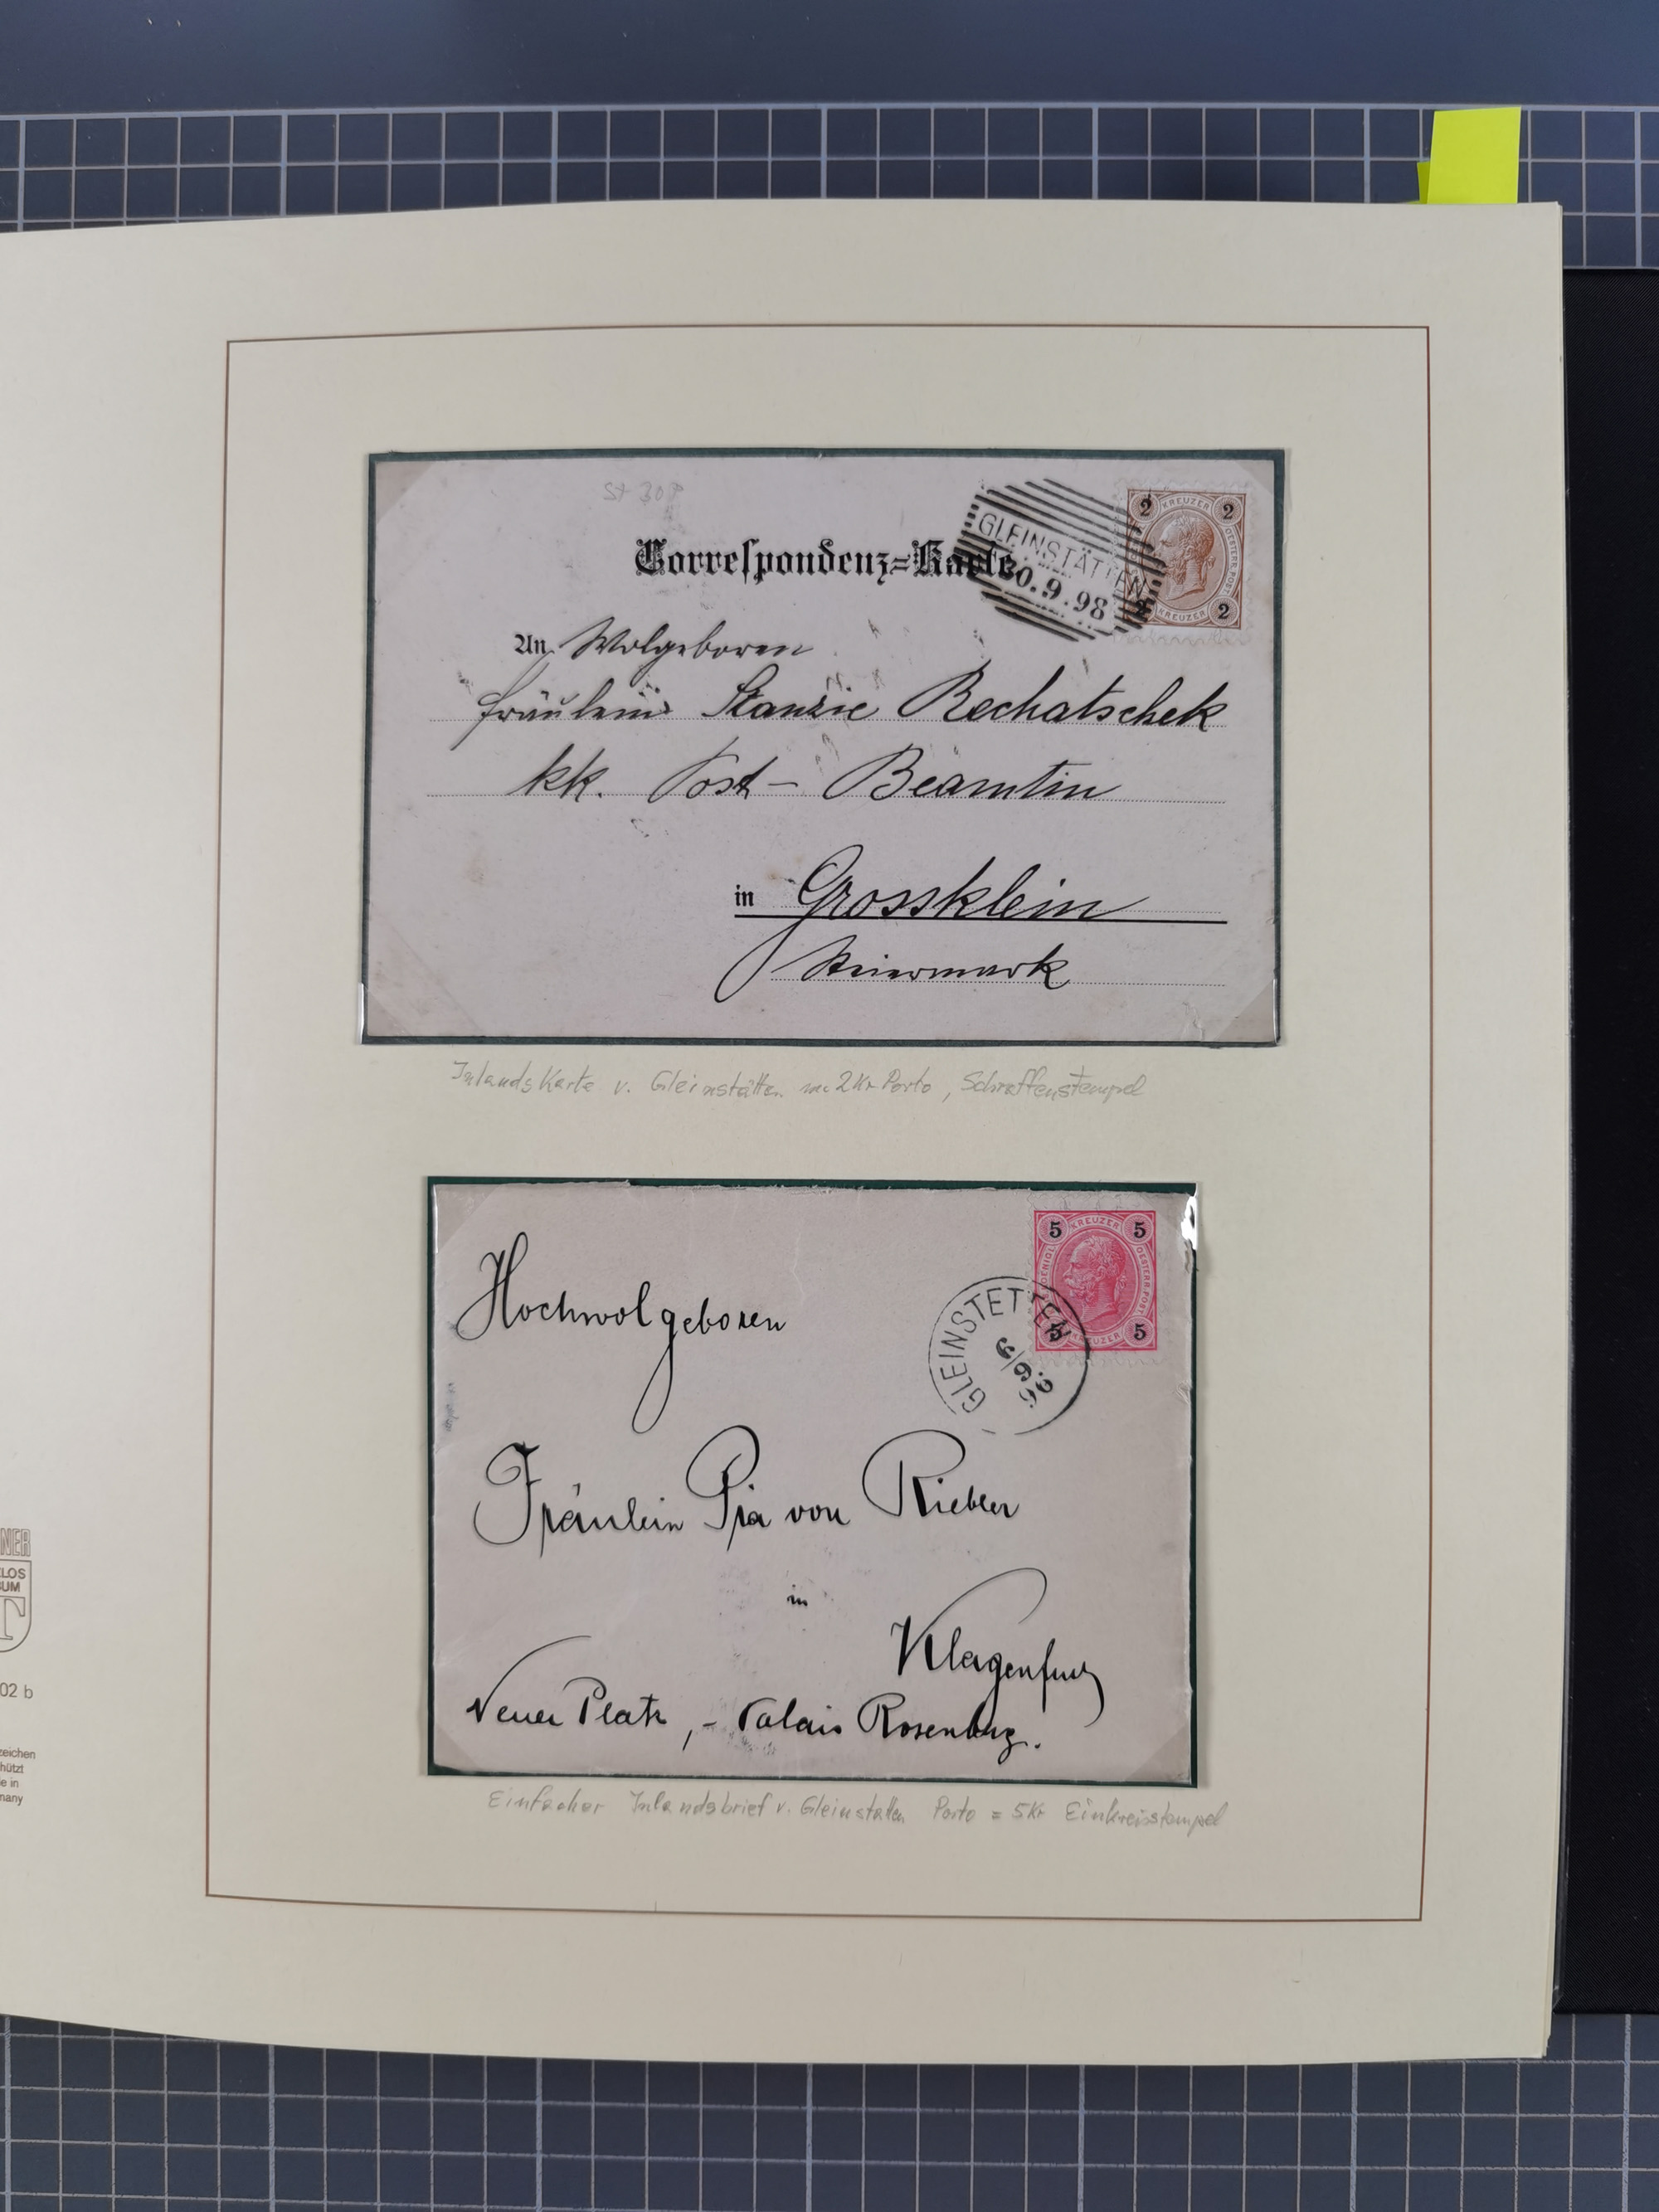 St 308
Correspondenz=Karte
GLEINSTÄTTEN
30.9.98
2 KREUZER 2
OESTERR. POST.
2 KREUZER 2
An Wolgeboren
Fräulein Stanzie Rechatschek
kk. Post- Beamtin
in Grossklein
Steiermark
Inlandskarte v. Gleinstätten m. 2 Kr Porto, Schraffenstempel
5 KREUZER 5
KOENIGL. OESTERR. POST.
5 KREUZER 5
GLEINSTETTEN
Hochwolgeboren
Fräulein Pia von
in
Klagenfurt
Neuer Platz, - Palais Rosenberg.
Einfacher Inlandsbrief v. Gleinstätten Porto = 5 Kr Einkreisstempel
NER
KLOS
BUM
T
02 b
zeichen
hützt
e in
many